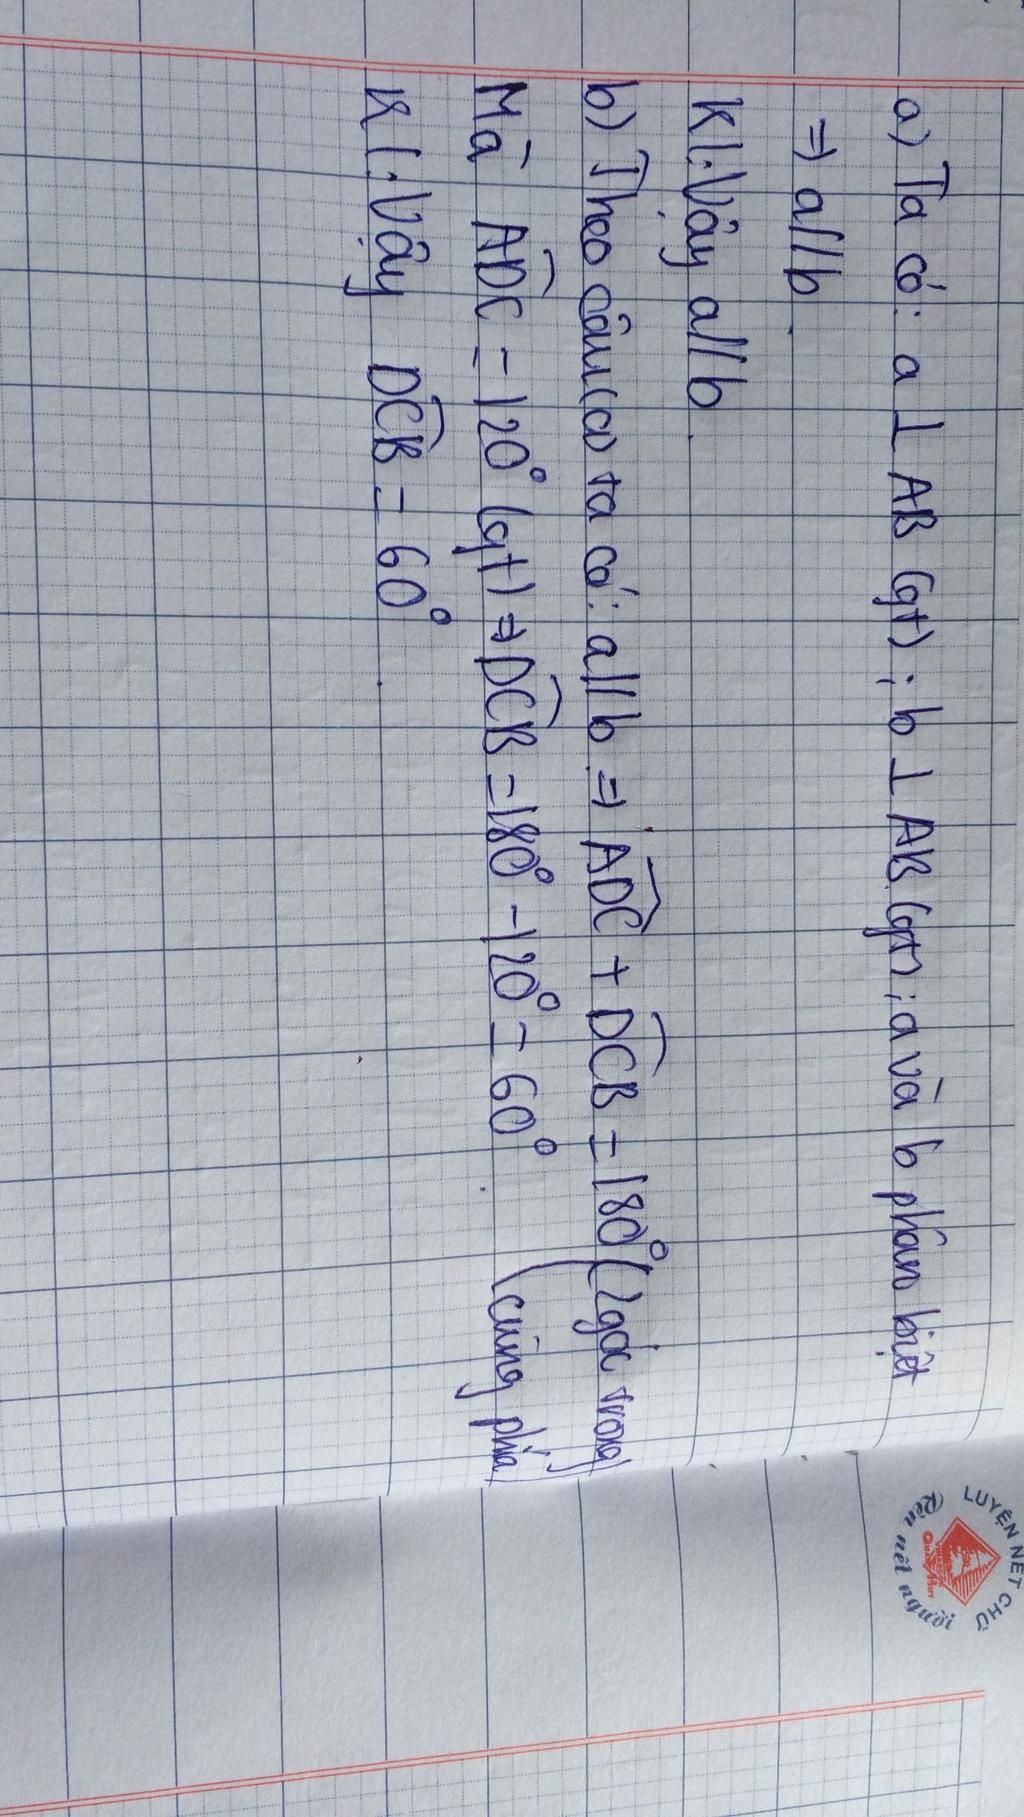 a) Ta có: a ⊥ AB (gt) ; b ⊥ AB (gt) ; a và b phân biệt
⇒ a // b.
Kl: Vậy a // b.
b) Theo câu (a) ta có: a // b ⇒ ADC + DCB = 180° (2 góc trong
cùng phía)
Mà ADC = 120° (gt) ⇒ DCB = 180° - 120° = 60°.
Kl: Vậy DCB = 60°.
LUYỆN NÉT CHỮ
Rèn nết người